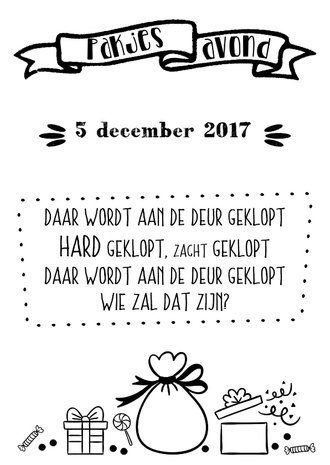 Pakjes avond
5 december 2017
DAAR WORDT AAN DE DEUR GEKLOPT
HARD GEKLOPT, ZACHT GEKLOPT
DAAR WORDT AAN DE DEUR GEKLOPT
WIE ZAL DAT ZIJN?